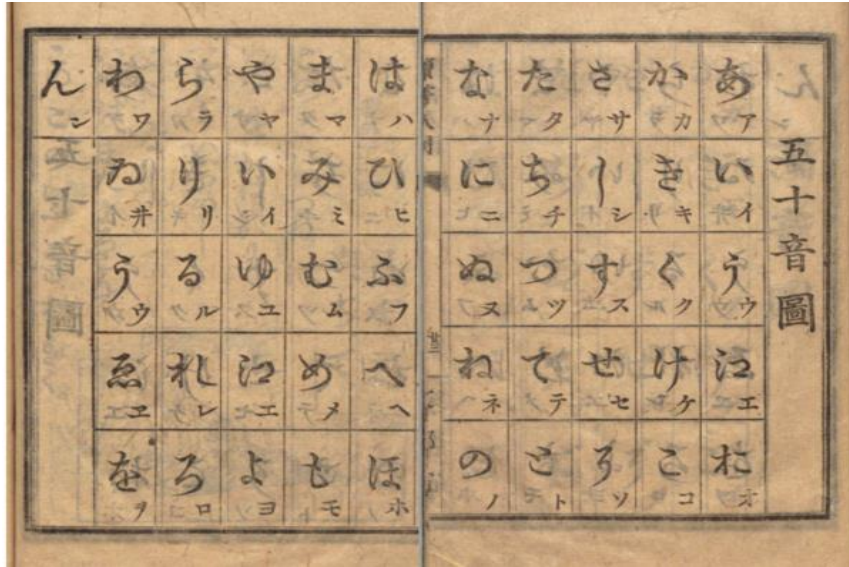 五十音圖
あア いイ うウ 𛀁エ おオ
かカ きキ くク けケ こコ
さサ しシ すス せセ そソ
たタ ちチ つツ てテ とト
なナ にニ ぬヌ ねネ のノ
はハ ひヒ ふフ へヘ ほホ
まマ みミ むム めメ もモ
やヤ いイ ゆユ 𛀁エ よヨ
らラ りリ るル れレ ろロ
わワ ゐ井 うウ ゑヱ をヲ
んン